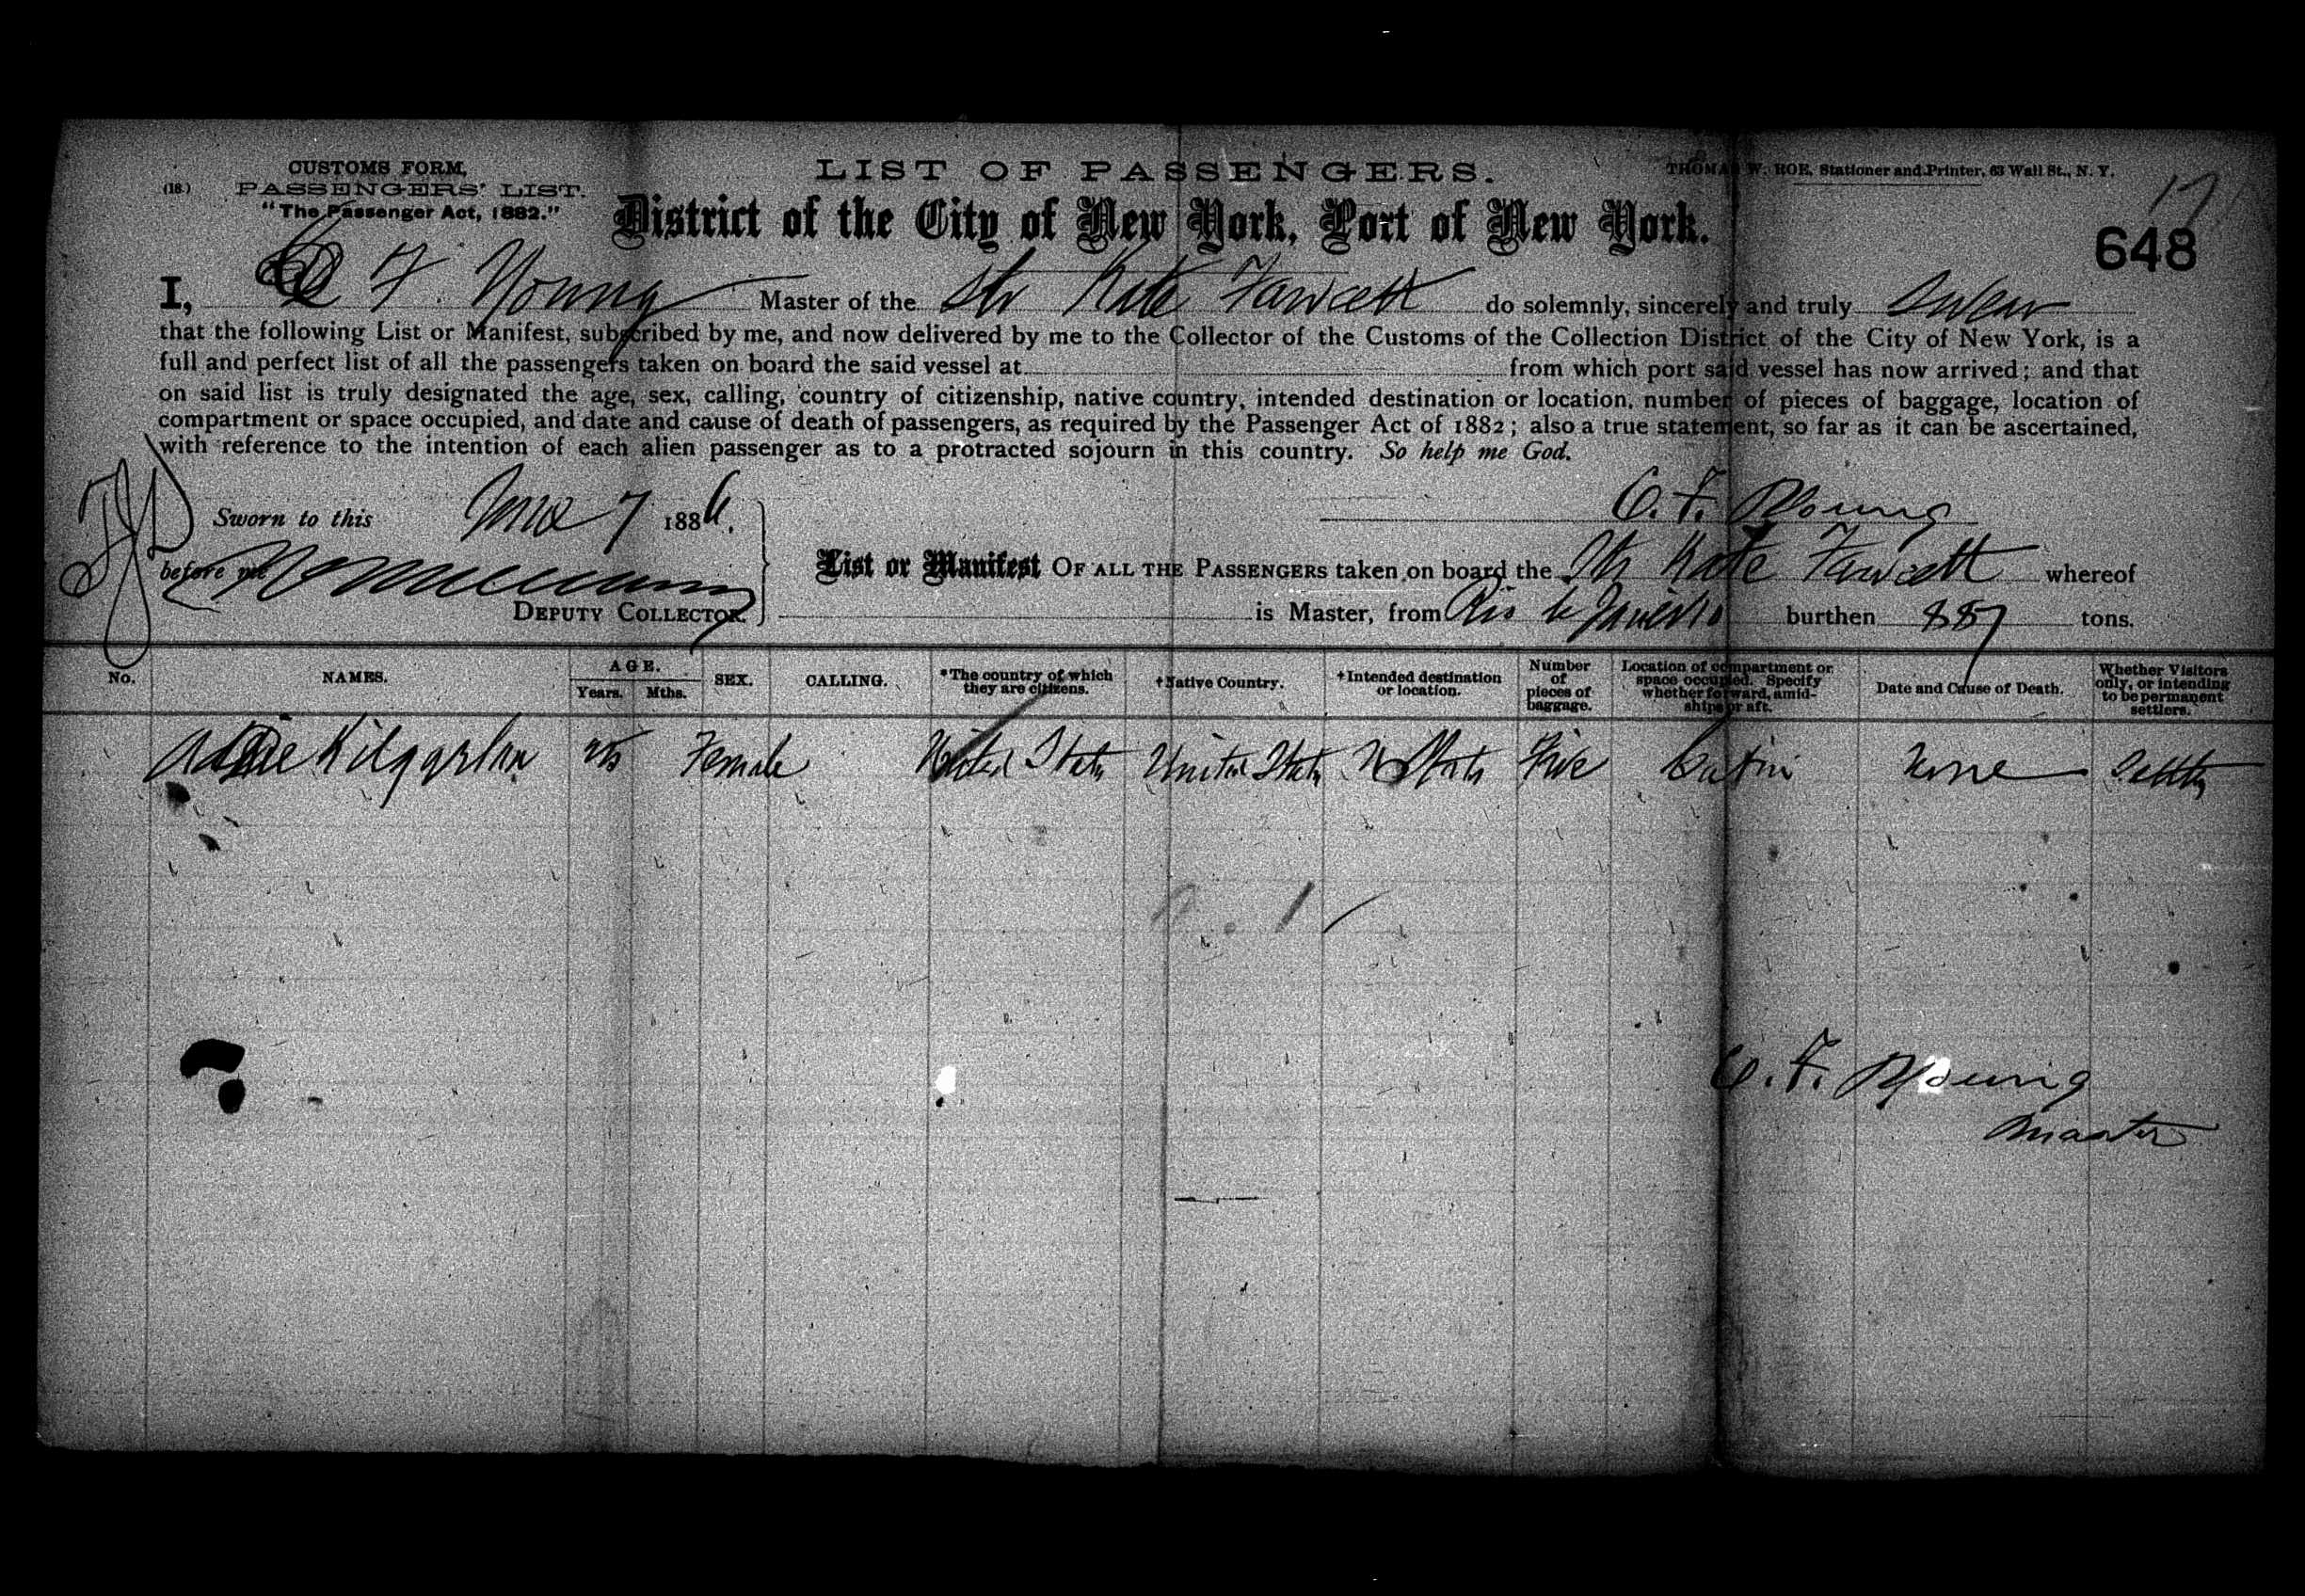 CUSTOMS FORM,
(18.) PASSENGERS' LIST.
"The Passenger Act, 1882."
LIST OF PASSENGERS.
THOMAS W. ROE, Stationer and Printer, 63 Wall St., N. Y.
District of the City of New York, Port of New York.
17
648
I, C F. Young Master of the Str Kate Fawcett do solemnly, sincerely and truly Swear
that the following List or Manifest, subscribed by me, and now delivered by me to the Collector of the Customs of the Collection District of the City of New York, is a
full and perfect list of all the passengers taken on board the said vessel at from which port said vessel has now arrived; and that
on said list is truly designated the age, sex, calling, country of citizenship, native country, intended destination or location, number of pieces of baggage, location of
compartment or space occupied, and date and cause of death of passengers, as required by the Passenger Act of 1882; also a true statement, so far as it can be ascertained,
with reference to the intention of each alien passenger as to a protracted sojourn in this country. So help me God.
C. F. Young
Sworn to this June 7 1886.
before me
DEPUTY COLLECTOR.
List or Manifest OF ALL THE PASSENGERS taken on board the Str Kate Fawcett whereof
is Master, from Rio de Janeiro burthen 887 tons.
No. NAMES. AGE. Years. Mths. SEX. CALLING. *The country of which they are citizens. †Native Country. †Intended destination or location. Number of pieces of baggage. Location of compartment or space occupied. Specify whether forward, amidships or aft. Date and Cause of Death. Whether Visitors only, or intending to be permanent settlers.
Addie Female United States United States U States Five Cabin None
C. F. Young
Master